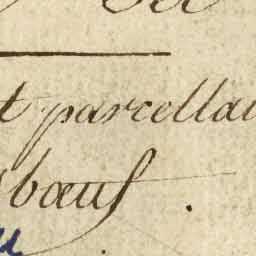 t parcellai
bœuf.